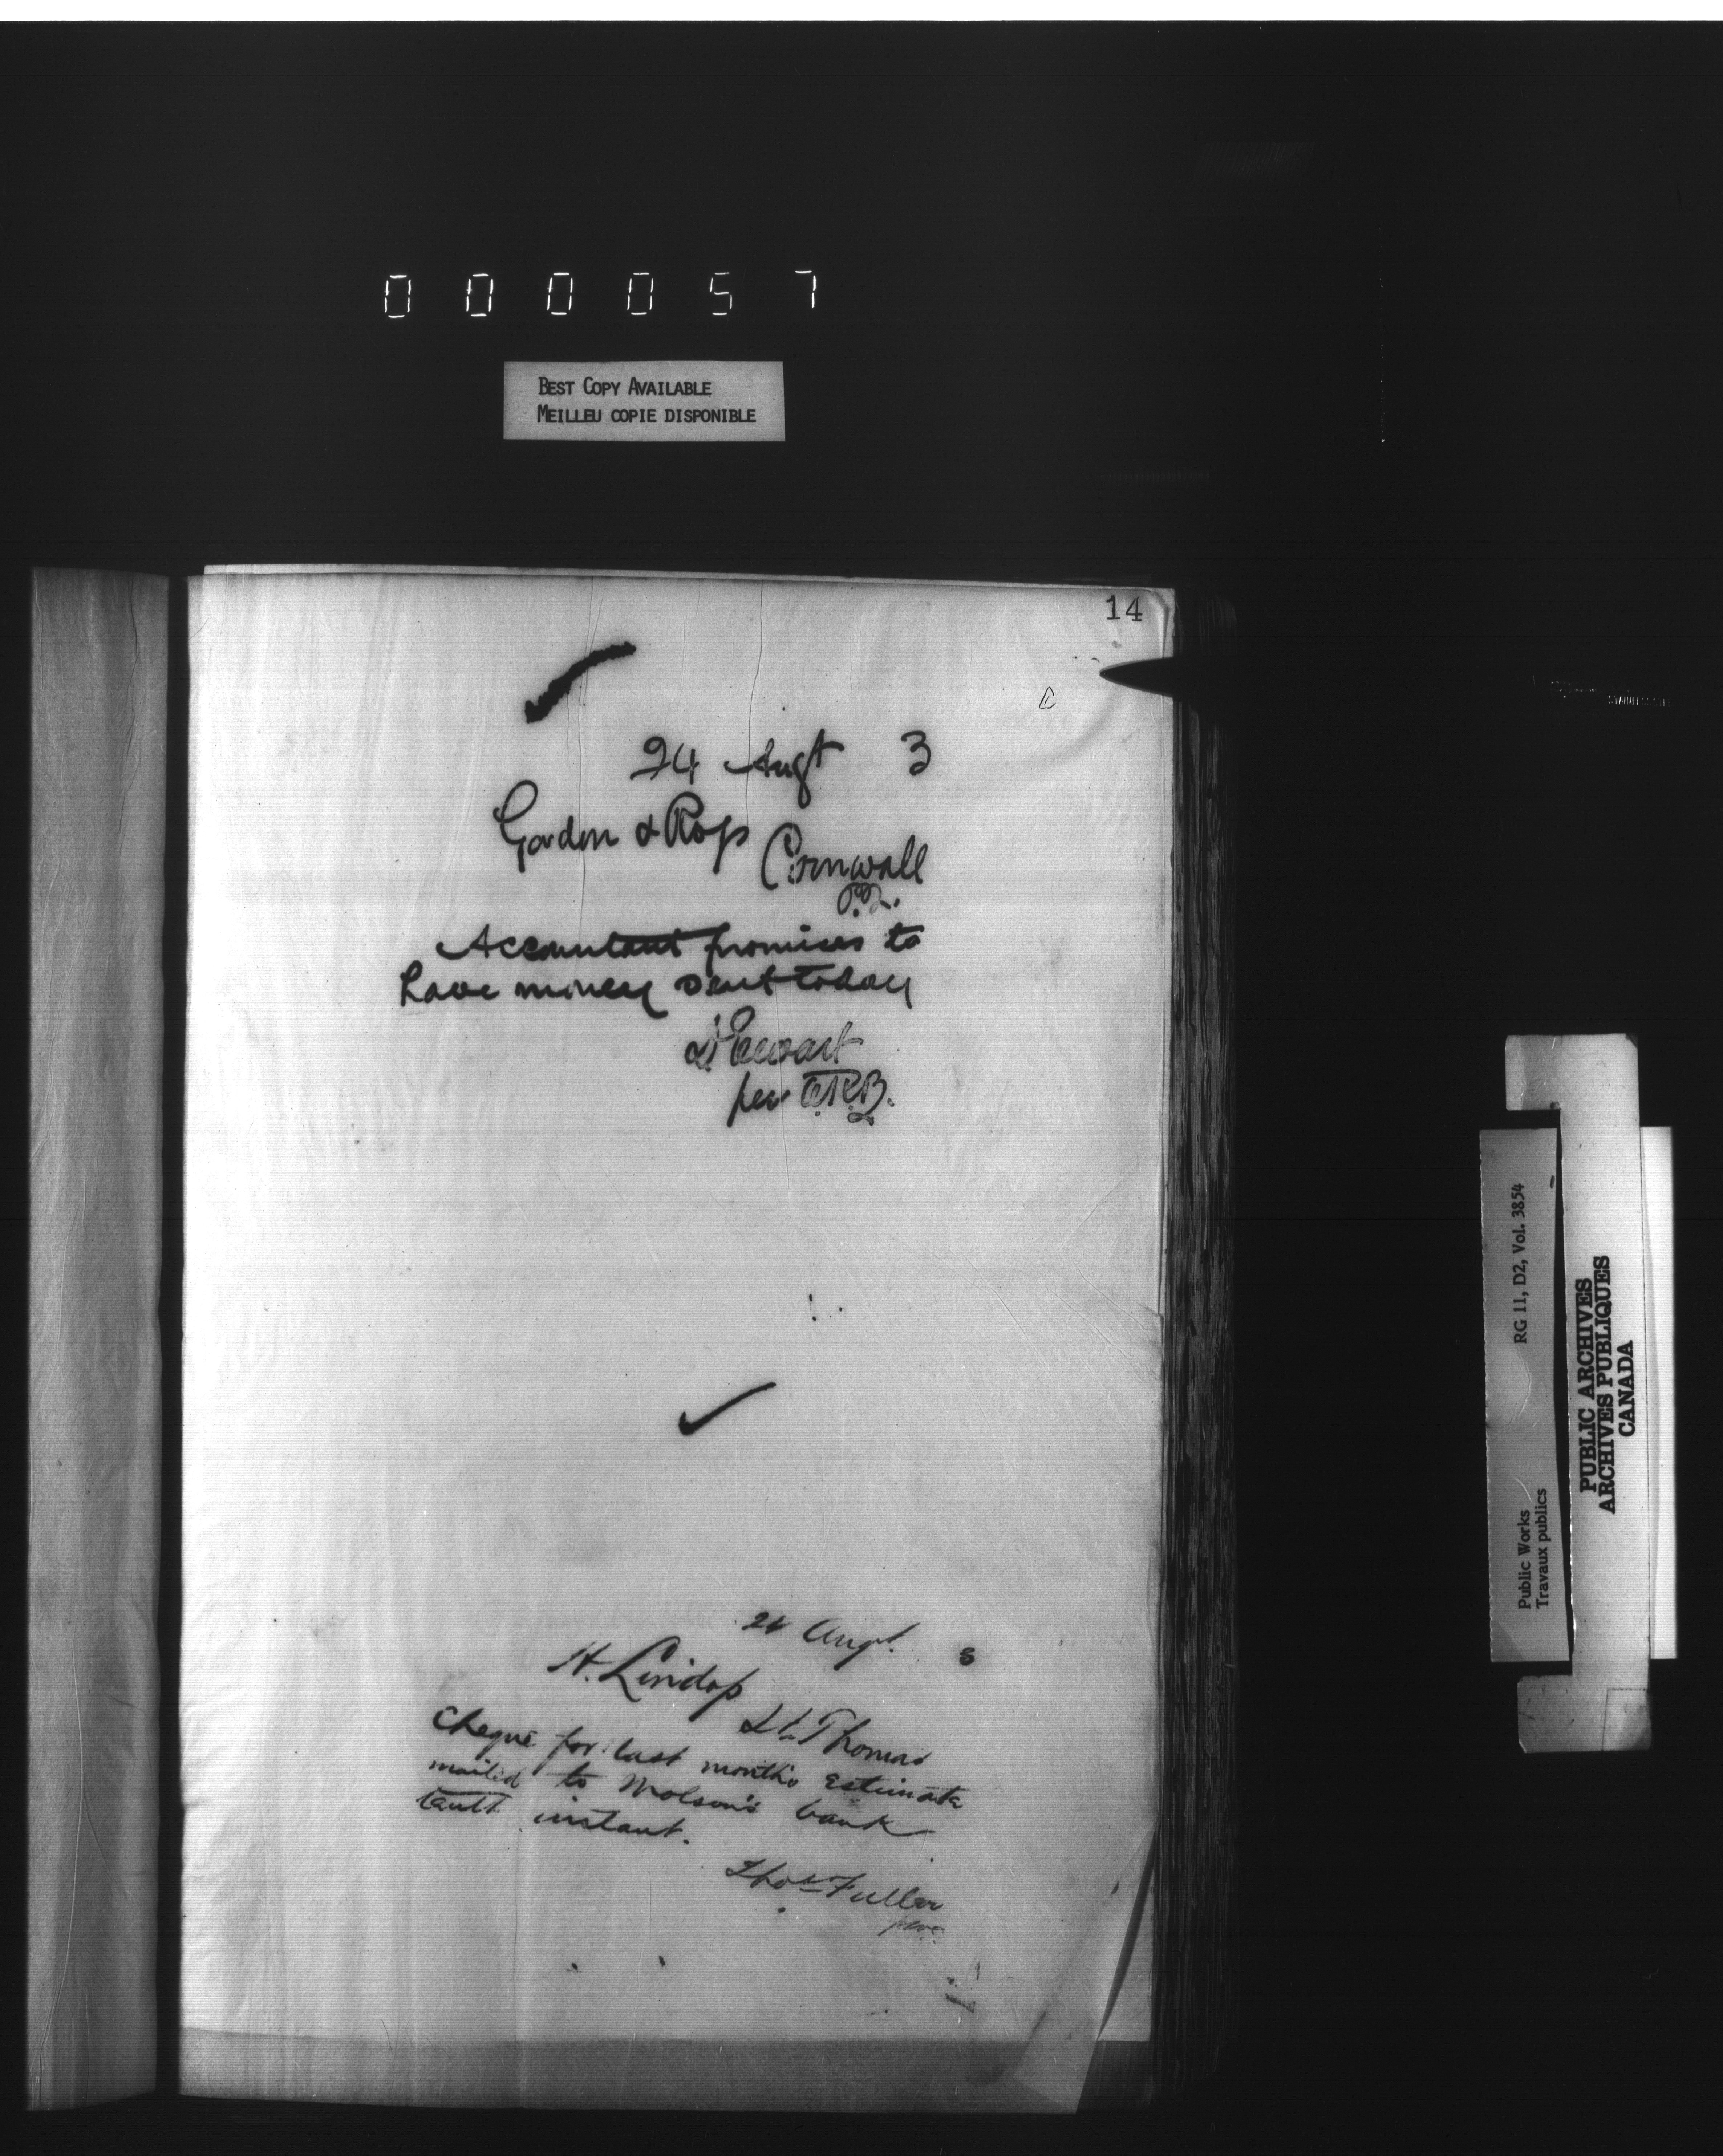 000057
BEST COPY AVAILABLE
MEILLEU COPIE DISPONIBLE
14
24 Augt 3
Gordon & Ross
Cornwall
Accountant promises to
have money sent today
D Ewart
per
24 Augt. 3
H. Lindop
St. Thomas
Cheque for last month's estimate
mailed to Molson's bank
instant.
Thos Fuller
RG 11, D2, Vol. 3854
Public Works
Travaux publics
PUBLIC ARCHIVES
ARCHIVES PUBLIQUES
CANADA